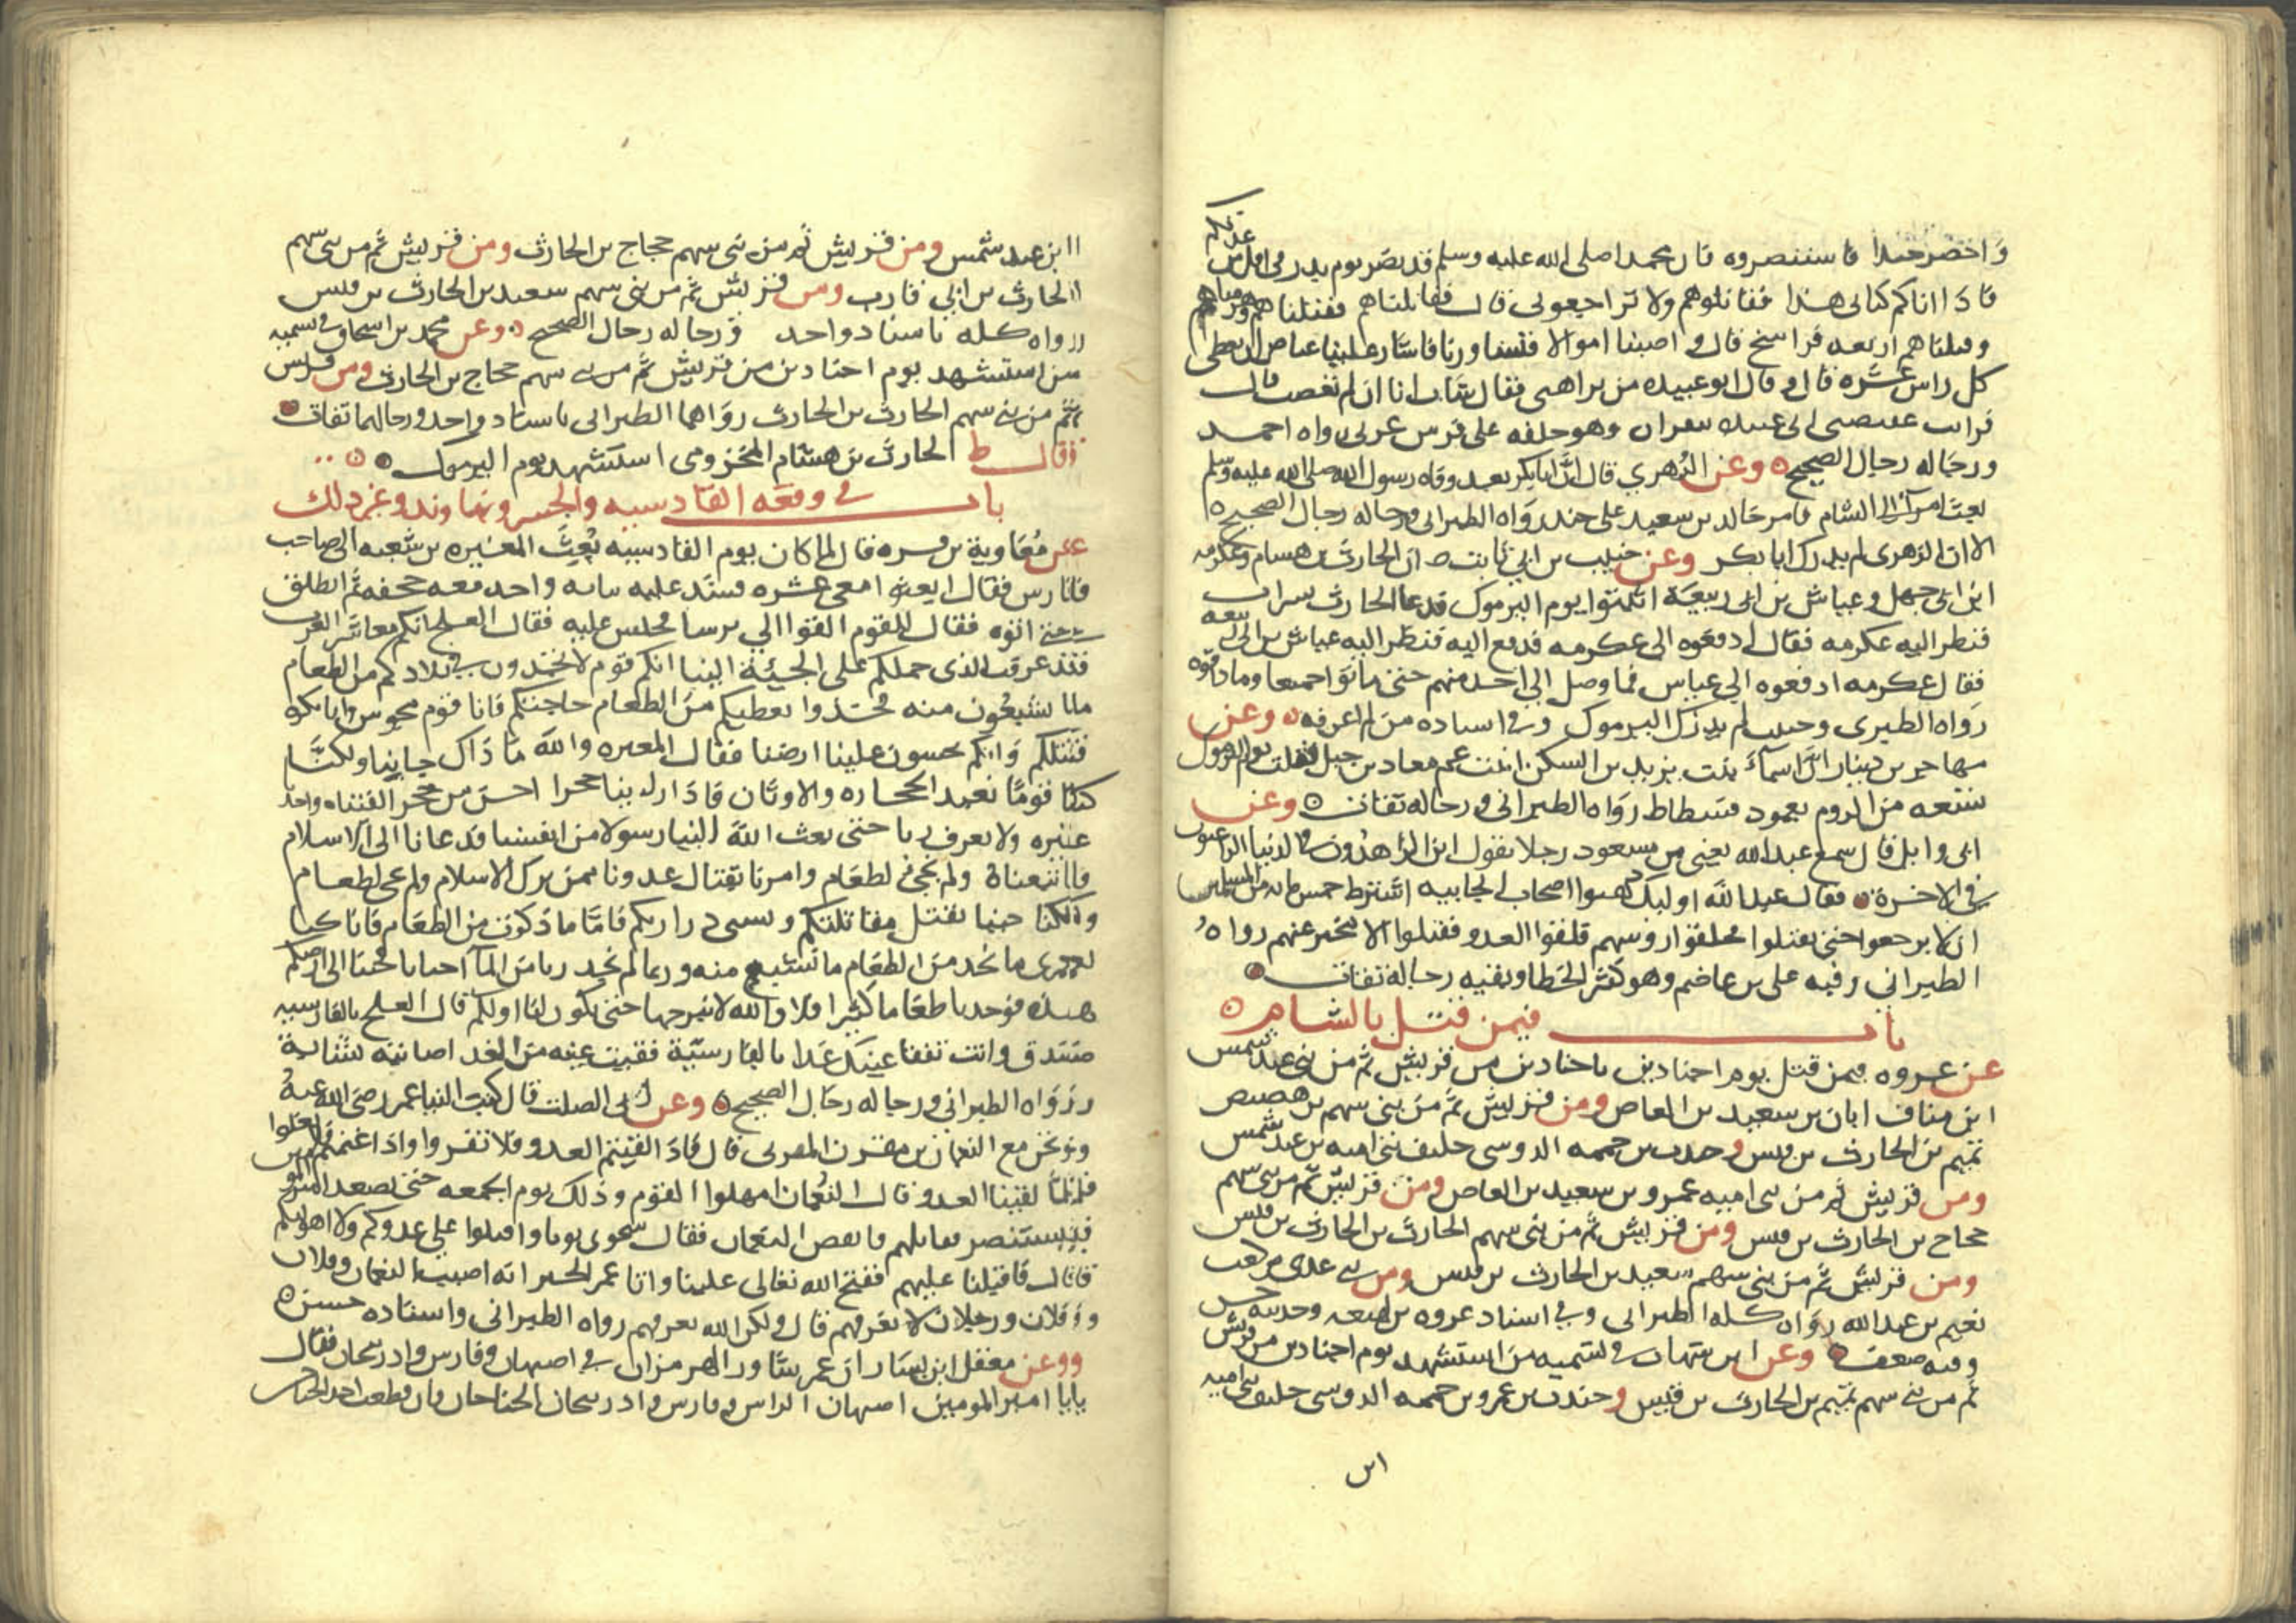 واحضر جندا فاستنصروه فان محمدا صلى الله عليه وسلم قد نصر يوم بدر في اقل من عدتكم
فاذا اتاكم كتابي هذا فقاتلوهم ولا تراجعوني قال فقاتلناهم فقتلناهم وهزمناهم
وقتلناهم اربعه فراسخ قال واصبنا اموالا فتشاورنا فاشار علينا عياض ان يعطى
كل راس عشره قال وقال ابو عبيده من يراهني فقال شاب انا ان لم تغضب قال
فرايت عقيصتي ابي عبيده تنقزان وهو خلفه على فرس عربي رواه احمد
ورجاله رجال الصحيح وعن الزهري قال ان ابا بكر بعد وفاه رسول الله صلى الله عليه وسلم
بعث امراء الى الشام فامر خالد بن سعيد على جند رواه الطبراني ورجاله رجال الصحيح
الا ان الزهري لم يدرك ابا بكر وعن حبيب بن ابي ثابت ان الحارث بن هشام وعكرمه
ابن ابي جهل وعياش بن ابي ربيعة اثبتوا يوم اليرموك فدعا الحارث بشراب
فنظر اليه عكرمه فقال ادفعوه الى عكرمه فدفع اليه فنظر اليه عياش بن ابي ربيعه
فقال عكرمه ادفعوه الي عياش فما وصل الي احد منهم حتى ماتوا جميعا وما ذاقوه
رواه الطبري وحبيب لم يدرك اليرموك وفي اسناده من لم اعرفه وعن
مهاجر بن دينار ان اسماء بنت يزيد بن السكن ابنت عم معاد بن جبل قتلت يوم اليرموك
تسعه من الروم بعمود فسطاط رواه الطبراني ورجاله ثقات وعن
ابي وايل قال سمع عبد الله يعني بن مسعود رجلا يقول اين الزاهدون في الدنيا الراغبون
في الاخرة فقال عبد الله اوليك اصحاب الجابيه اشترط خمس مايه من المسلمين
ان لا يرجعوا حتى يقتلوا فحلقوا روسهم فلقوا العدو فقتلوا الا مخبر عنهم رواه
الطبراني وفيه علي بن عاصم وهو كثر الخطا وبقيه رجاله ثقات
باب فيمن قتل بالشام
عن عروه فيمن قتل يوم اجنادين باجنادين من قريش ثم من بني عبد شمس
ابن مناف ابان بن سعيد بن العاص ومن قريش ثم من بني سهم بن هصيص
تميم بن الحارث بن قيس وجندب بن حممه الدوسي حليف بني اميه بن عبد شمس
ومن قريش ثم من بني اميه عمرو بن سعيد بن العاص ومن قريش ثم من بني سهم
حجاج بن الحارث بن قيس ومن قريش ثم من بني سهم الحارث بن الحارث بن قيس
ومن قريش ثم من بني سهم سعيد بن الحارث بن قيس ومن بني عدي بن كعب
نعيم بن عبد الله رواه كله الطبراني وفي اسناد عروه بن لهيعه وحديثه حسن
وفيه ضعف وعن ابن شهاب في تسميه من استشهد يوم اجنادين من قريش
ثم من بني سهم تميم بن الحارث بن قيس وجندب بن عمرو بن حممه الدوسي حليف بني اميه
ابن
ابن عبد شمس ومن قريش ثم من بني سهم حجاج بن الحارث ومن قريش ثم من بني سهم
الحارث بن ابي قارب ومن قريش ثم من بني سهم سعيد بن الحارث بن قيس
رواه كله باسناد واحد ورجاله رجال الصحيح وعن محمد بن اسحاق في تسميه
من استشهد يوم اجنادين من قريش ثم من بني سهم حجاج بن الحارث ومن قريش
ثم من بني سهم الحارث بن الحارث رواهما الطبراني باسناد واحد ورجالهما ثقات
وقال ط الحارث بن هشام المخزومي استشهد يوم اليرموك
باب في وقعه القادسيه والجسر ونهاوند وغير ذلك
عن معاوية بن قره قال لما كان يوم القادسيه بعث المغيره بن شعبه الى صاحب
فارس فقال ابعثوا معي عشره فشد عليه ثيابه واخد معه حجفه ثم انطلق
حتى اتوه فقال للقوم القوا الي ترسا فجلس عليه فقال العلج انكم معاشر العرب
قد عرفت الذي حملكم على الجيئة الينا انكم قوم لا تجدون في بلادكم من الطعام
ما تشبعون منه فخذوا نعطيكم من الطعام حاجتكم فانا قوم مجوس وانا نكره
قتلكم وانكم تنجسون علينا ارضنا فقال المغيره والله ما ذاك جا بنا ولكنا
كنا قوما نعبد الحجاره والاوثان فاذا راينا حجرا احسن من حجر القيناه واخذنا
غيره ولا نعرف ربا حتى بعث الله الينا رسولا من انفسنا فدعانا الى الاسلام
فاتبعناه ولم نجي لطعام وامرنا بقتال عدونا ممن ترك الاسلام ولم نجي لطعام
ولكنا جينا نقتل مقاتلتكم ونسبي دراريكم فاما ما ذكرت من الطعام فانا كنا
لعمري ما نجد من الطعام ما نشبع منه وربما لم نجد ريا من الما احيانا فجينا الى ارضكم
هذه فوجدنا طعاما كثيرا فلا والله لا نبرحها حتى تكون لنا او لكم قال العلج بالفارسيه
صدق وانت تفقا عينك غدا بالفارسية ففقيت عينه من الغد اصابته نشابة
رواه الطبراني ورجاله رجال الصحيح وعن ابي الصلت قال كتب الينا عمر رضي الله عنه
ونحن مع النعمان بن مقرن المزني قال فاذا لقيتم العدو فلا تفروا واذا غنمتم فلا تغلوا
فلما لقينا العدو قال النعمان امهلوا القوم وذلك يوم الجمعه حتى يصعد امير المومنين المنبر
فيستنصر فقال سجوني ثوبا واقبلوا علي عدوكم ولا اهولنكم
قال فاقبلنا عليهم ففتح الله تعالى علينا واتا عمر الخبر انه اصيب النعمان وفلان
وفلان ورجلان لا نعرفهم قال ولكن الله يعرفهم رواه الطبراني واسناده حسن
وعن معقل ابن يسار ان عمر شاور الهرمزان في اصبهان وفارس وادربيجان فقال
يا امير المومنين اصبهان الراس وفارس وادربيجان الجناحان فان قطعت احد الجناحين